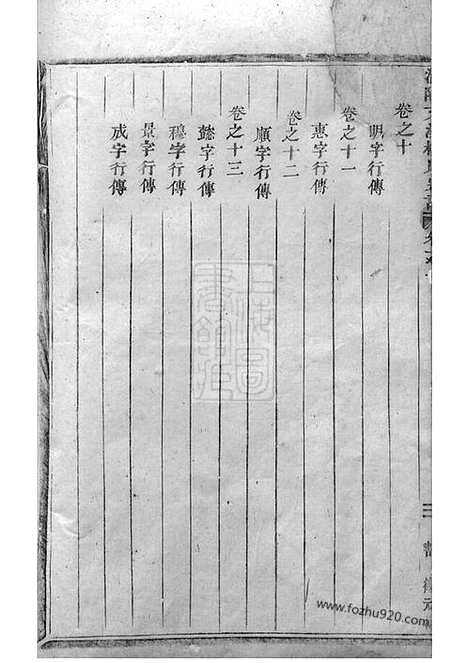 卷之十
明字行傳
卷之十一
惠字行傳
卷之十二
順字行傳
卷之十三
懿字行傳
穆字行傳
景字行傳
成字行傳
上海圖
書館藏
www.fozhu920.com